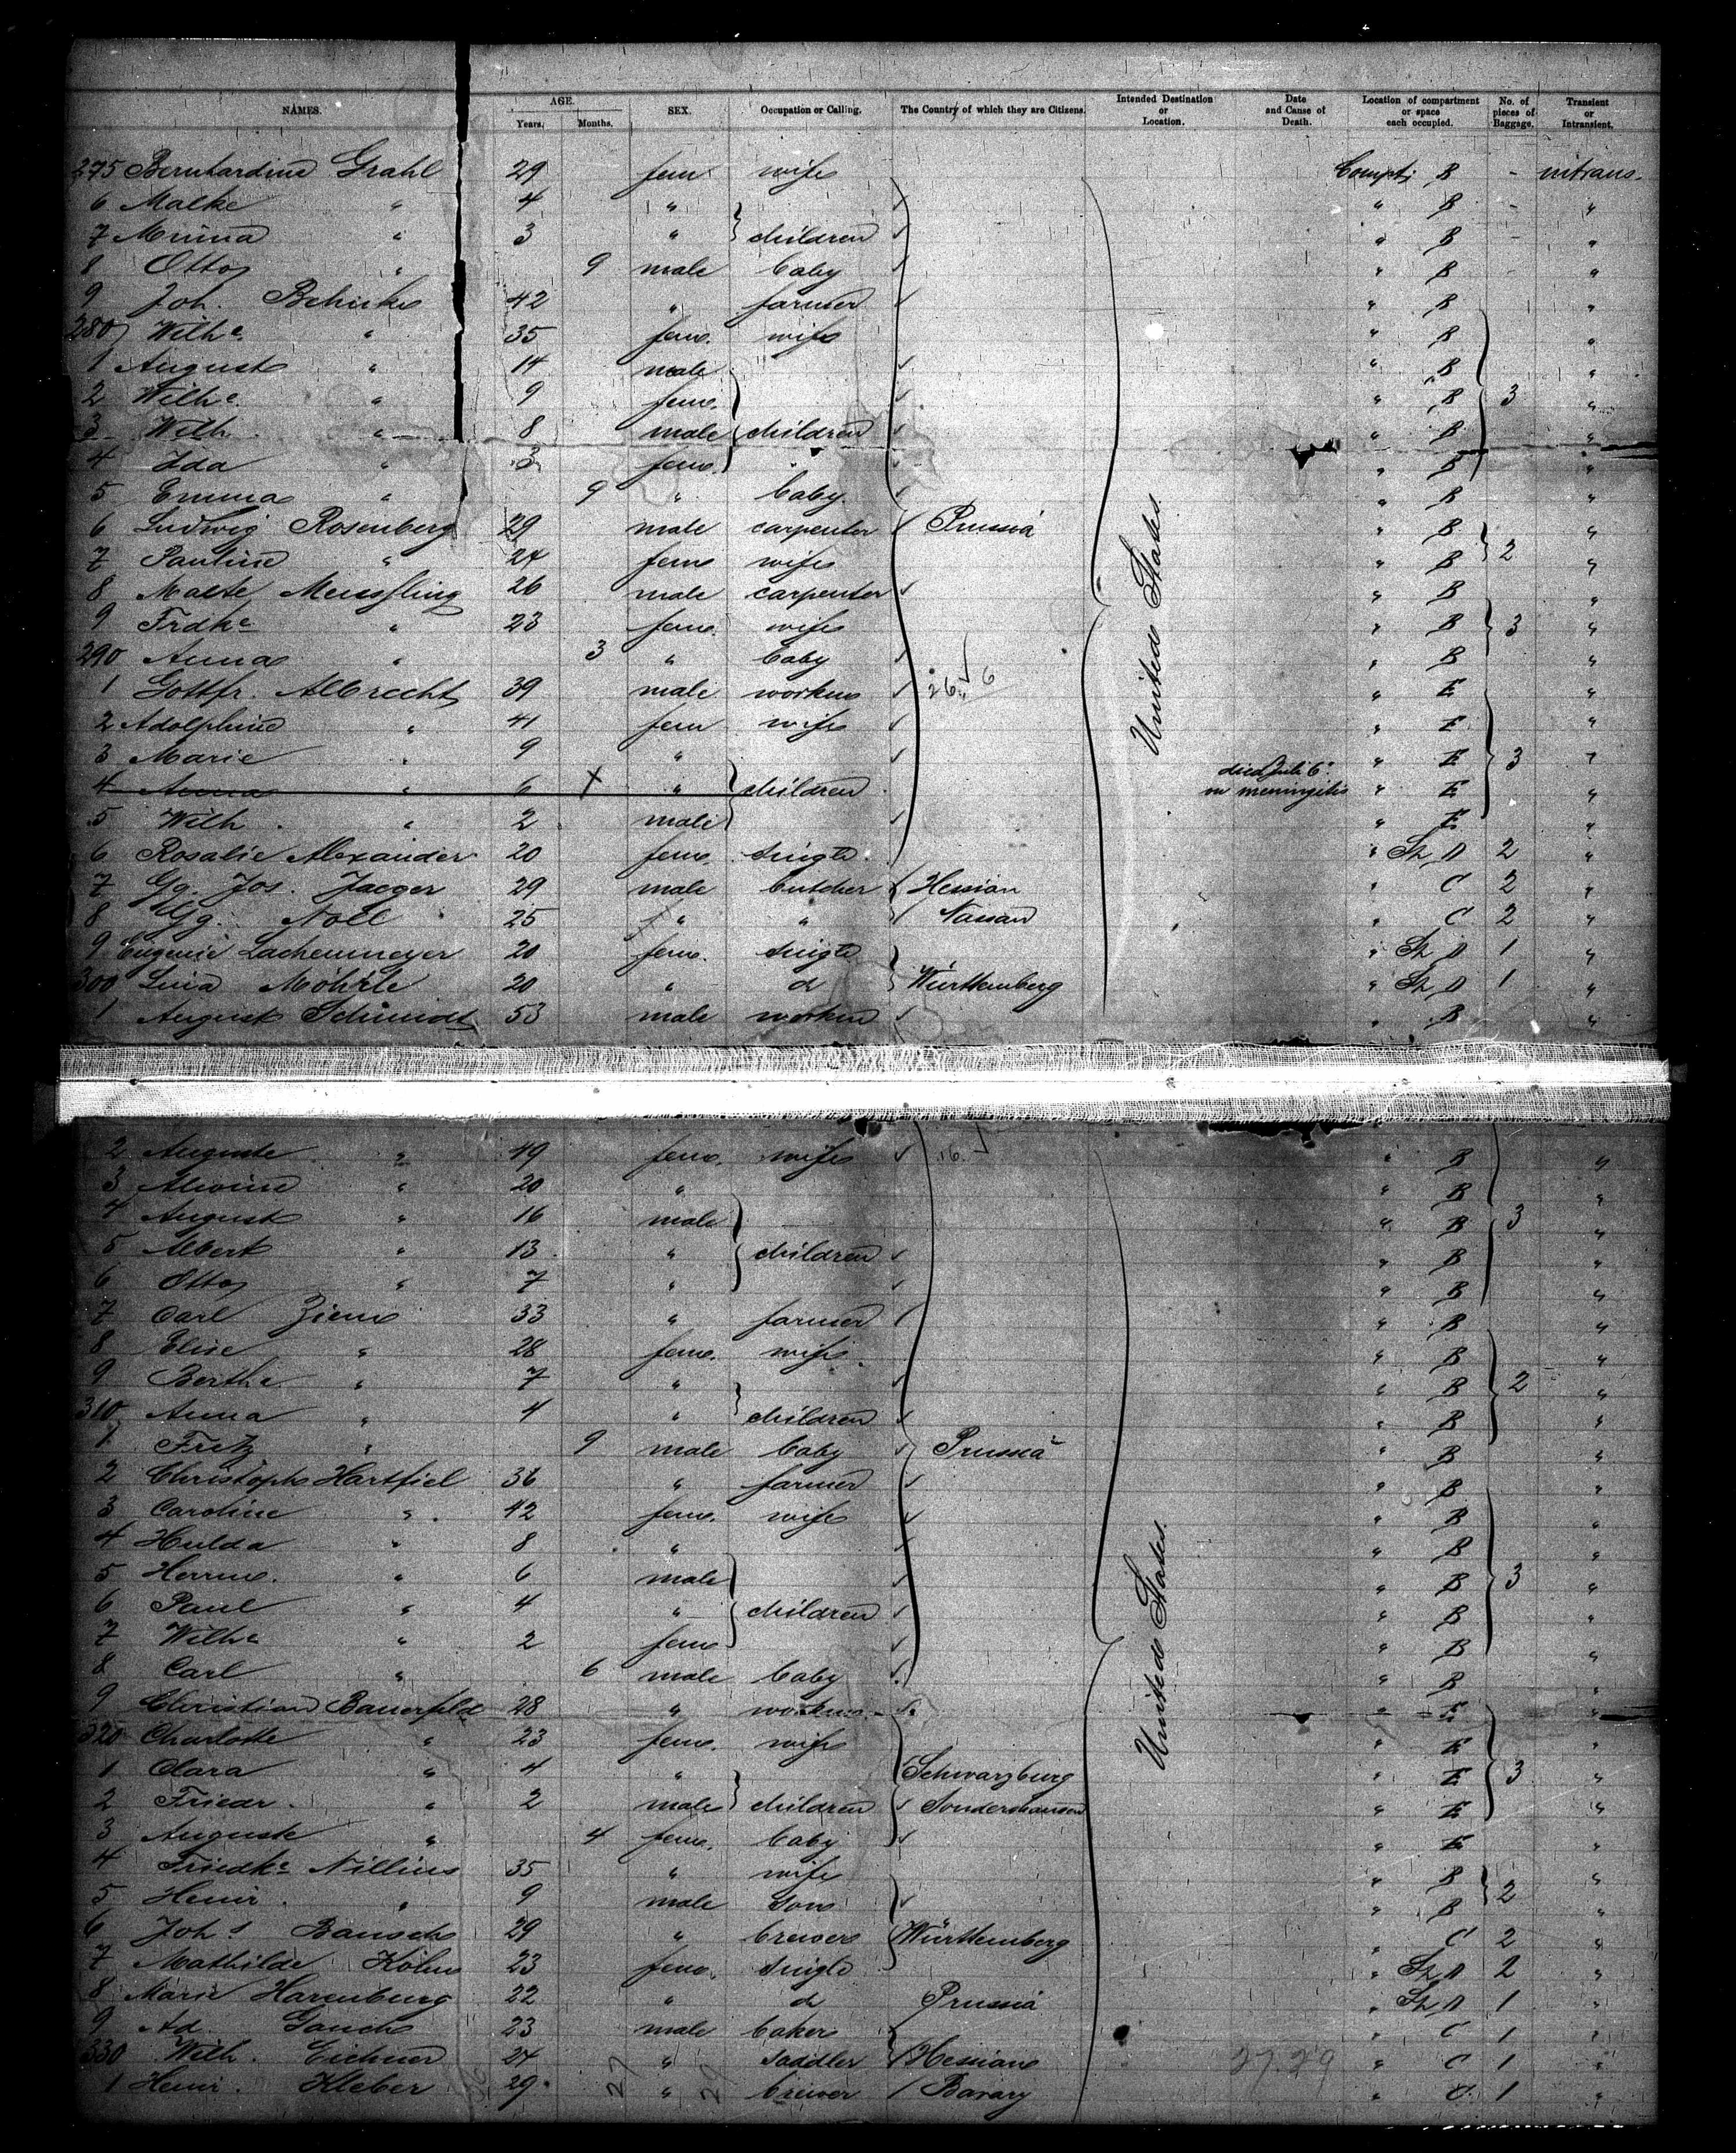 NAMES. AGE. Years. Months. SEX. Occupation or Calling. The Country of which they are Citizens. Intended Destination or Location. Date and Cause of Death. Location of compartment or space each occupied. No. of pieces of Baggage. Transient or Intransient.
275 Bernhardine Grahl 29 fem. wife Compt. B - intrans.
6 Malke " 4 " " B - "
7 Minna " 3 " children " B - "
8 Otto " 9 male baby " B "
9 Joh. 42 " farmer " B "
280 Wilhe. " 35 fem. wife " B "
1 August " 14 male " B "
2 Wilhe. " 9 fem. " B 3 "
3 Wilh. " 8 male children " B "
4 Ida " 3 fem. " B "
5 Emma " 9 " baby " B "
6 Ludwig Rosenberg 29 male carpenter Prussia " B "
7 Pauline " 24 fem. wife " B 2 "
8 Malte 26 male carpenter " B "
9 Frdke " 23 fem. wife " B 3 "
290 Anna " 3 " baby " B "
1 Gottfr. Albrecht 39 male workm " E "
2 Adolphine " 41 fem wife United States " E "
3 Marie " 9 " " E 3 "
4 Anna " 6 X " children died Juli 6 meningitis " E "
5 Wilh. " 2 male " E "
6 Rosalie Alexander 20 fem. single " D 2 "
7 Gg. Jos. Jaeger 29 male butcher Hessian " C 2 "
8 Gg. Noll 25 " " Nassau " C 2 "
9 Eugenie Lachenmeyer 20 fem. single " D 1 "
300 Lina Möhrle 20 " d Württemberg " D 1 "
1 August Schmidt 53 male workm " B "
2 Auguste " 49 fem. wife 16 " B "
3 Alwine " 20 " " B "
4 August " 16 male " B 3 "
5 Albert " 13 " children " B "
6 Otto " 7 " " B "
7 Carl Ziem 33 " farmer " B "
8 Elise " 28 fem. wife " B "
9 Berthe " 7 " " B 2 "
310 Anna " 4 " children " B "
1 Fritz " 9 male baby Prussia " B "
2 Christoph Hartfiel 36 " farmer " B "
3 Caroline " 42 fem. wife " B "
4 Hulda " 8 " " B "
5 Herrm. " 6 male " B 3 "
6 Paul " 4 " children " B "
7 Wilhe " 2 fem. " B "
8 Carl " 6 male baby United States. " B "
9 Christian Bauerfeld 28 " workm. " E "
320 Charlotte " 23 fem. wife " E "
1 Clara " 4 " Schwarzburg " E 3 "
2 Friedr. " 2 male children Sondershausen " E "
3 Auguste " 4 fem. baby " E "
4 Friedke Nillius 35 " wife " B "
5 Heinr. " 9 male son " B 2 "
6 Johs Bausch 29 " brewer Württemberg " C 2 "
7 Mathilde Kohn 23 fem. single " D 2 "
8 Marie Harenburg 22 " d Prussia " D 1 "
9 Ad. Gauch 23 male baker " C 1 "
330 Wilh. Eichner 24 " saddler Hessian 27.29 " C 1 "
1 Heinr. Kleber 29 27 29 " brewer Bavary " C 1 "